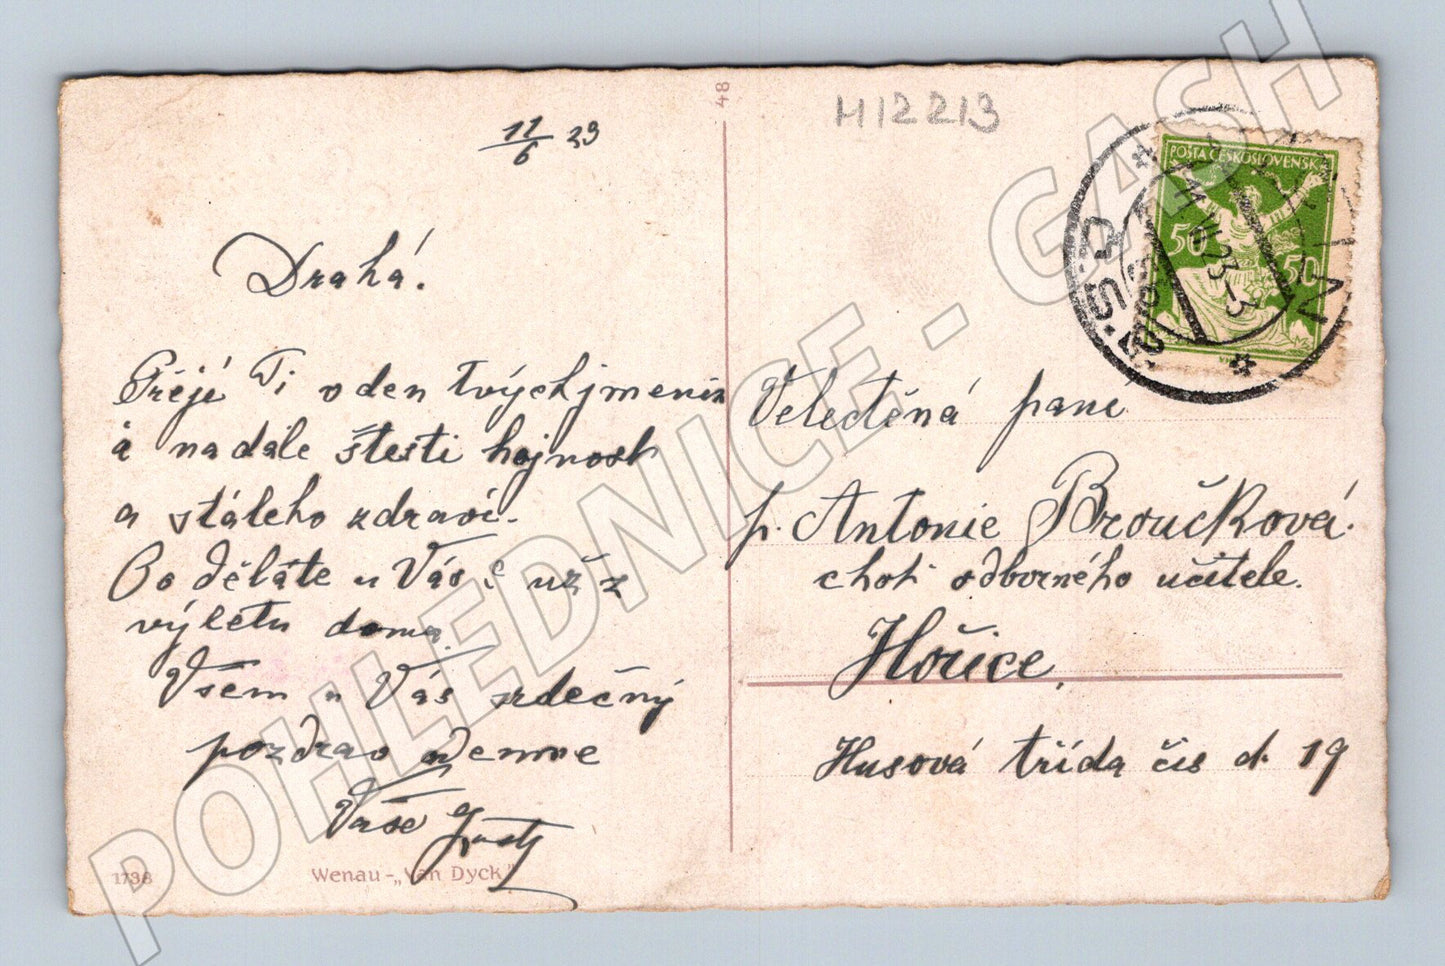 11/6 23
Drahá.
Přeji Ti v den tvých jmenin
a nadále štesti hojnost
a stáleho zdraví.
Co děláte u Vás? už z
výletu doma.
Všem u Vás srdečný
pozdrav
Vaše
1738
Wenau-„Van Dyck"
48
H12213
POŠTA ČESKOSLOVENSKÁ
50 50
Č.S.R.
11.VI.23-3
Velectěná paní
p. Antonie Broučková.
choť odborného učitele.
Hořice.
Husová třída čis d. 19
POHLEDNICE - GASH